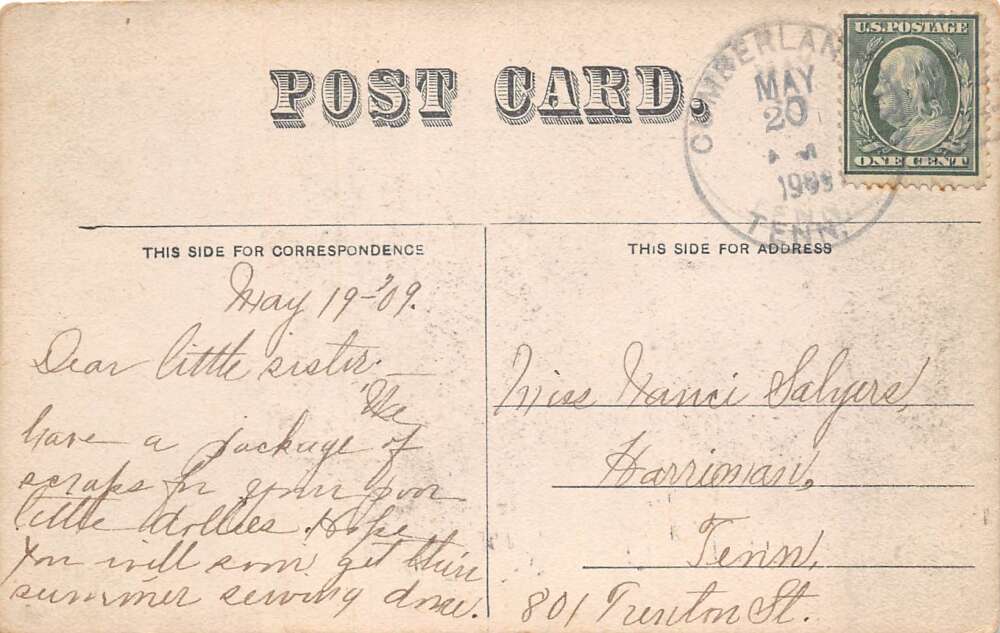 POST CARD.
CUMBERLAN
MAY
20
TENN.
U.S. POSTAGE
ONE CENT
THIS SIDE FOR CORRESPONDENCE
May 19-'09.
Dear little sister:—
We
have a package of
scraps for your poor
little dollies. Hope
you will soon get their
summer sewing done.
THIS SIDE FOR ADDRESS
Miss Nanci Salyers,
Harriman,
Tenn,
801 Trenton St.